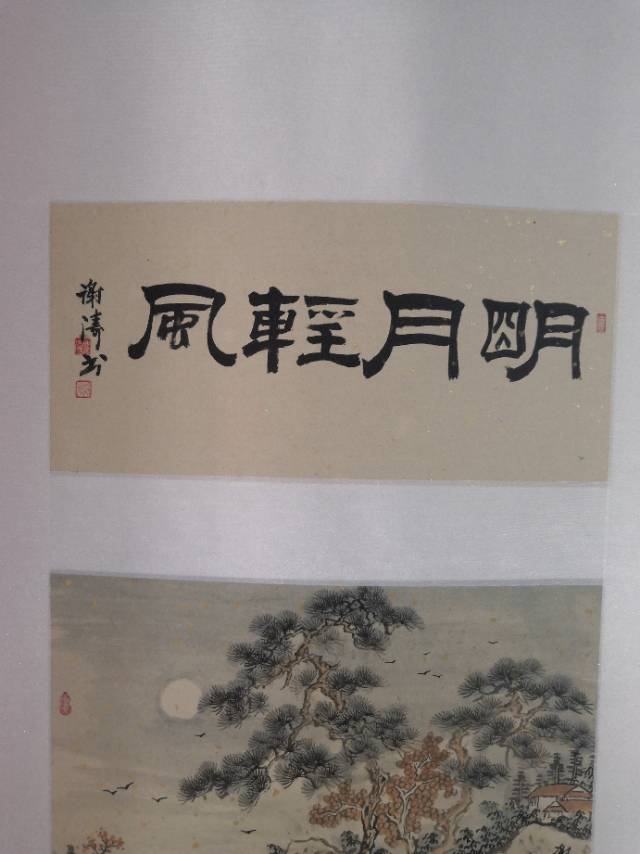 明月輕風
谢濤书